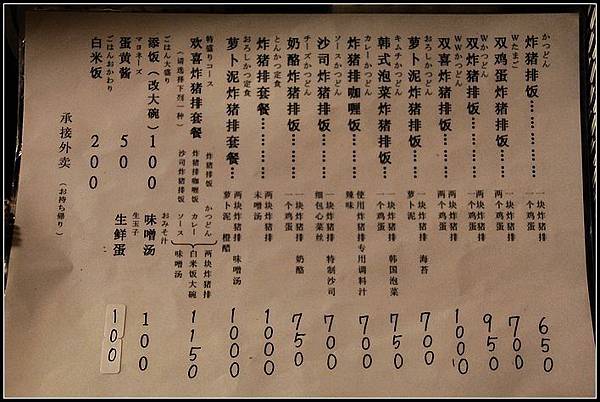 かつどん
炸猪排饭…… 一块炸猪排 一个鸡蛋 650
Wたまご
双鸡蛋炸猪排饭…… 一块炸猪排 两个鸡蛋 700
Wかつどん
双炸猪排饭…… 两块炸猪排 一个鸡蛋 950
WWかつどん
双喜炸猪排饭…… 两块炸猪排 两个鸡蛋 1000
おろしかつどん
萝卜泥炸猪排饭…… 一块炸猪排 海苔 萝卜泥 700
キムチかつどん
韩式泡菜炸猪排饭…… 一块炸猪排 韩国泡菜 一个鸡蛋 750
カレーかつどん
炸猪排咖喱饭…… 使用炸猪排专用调料汁 辣味 700
ソースかつどん
沙司炸猪排饭…… 一块炸猪排 特制沙司 细包心菜丝 700
チーズかつどん
奶酪炸猪排饭…… 一块炸猪排 奶酪 一个鸡蛋 750
とんかつ定食
炸猪排套餐…… 两块炸猪排 味噌汤 1000
おろしかつ定食
萝卜泥炸猪排套餐… 两块炸猪排 味噌汤 萝卜泥 橙醋 1000
特盛りコース
欢喜炸猪排套餐
(请选择下列一种)
炸猪排饭 かつどん
炸猪排咖喱饭 カレー
沙司炸猪排饭 ソース
两块炸猪排
白米饭大碗
味噌汤
1150
ごはん大盛り
添饭(改大碗) 100
おみそ汁
味噌汤 100
マヨネーズ
蛋黄酱 50
生玉子
生鲜蛋 100
ごはんおかわり
白米饭 200
承接外卖 (お持ち帰り)